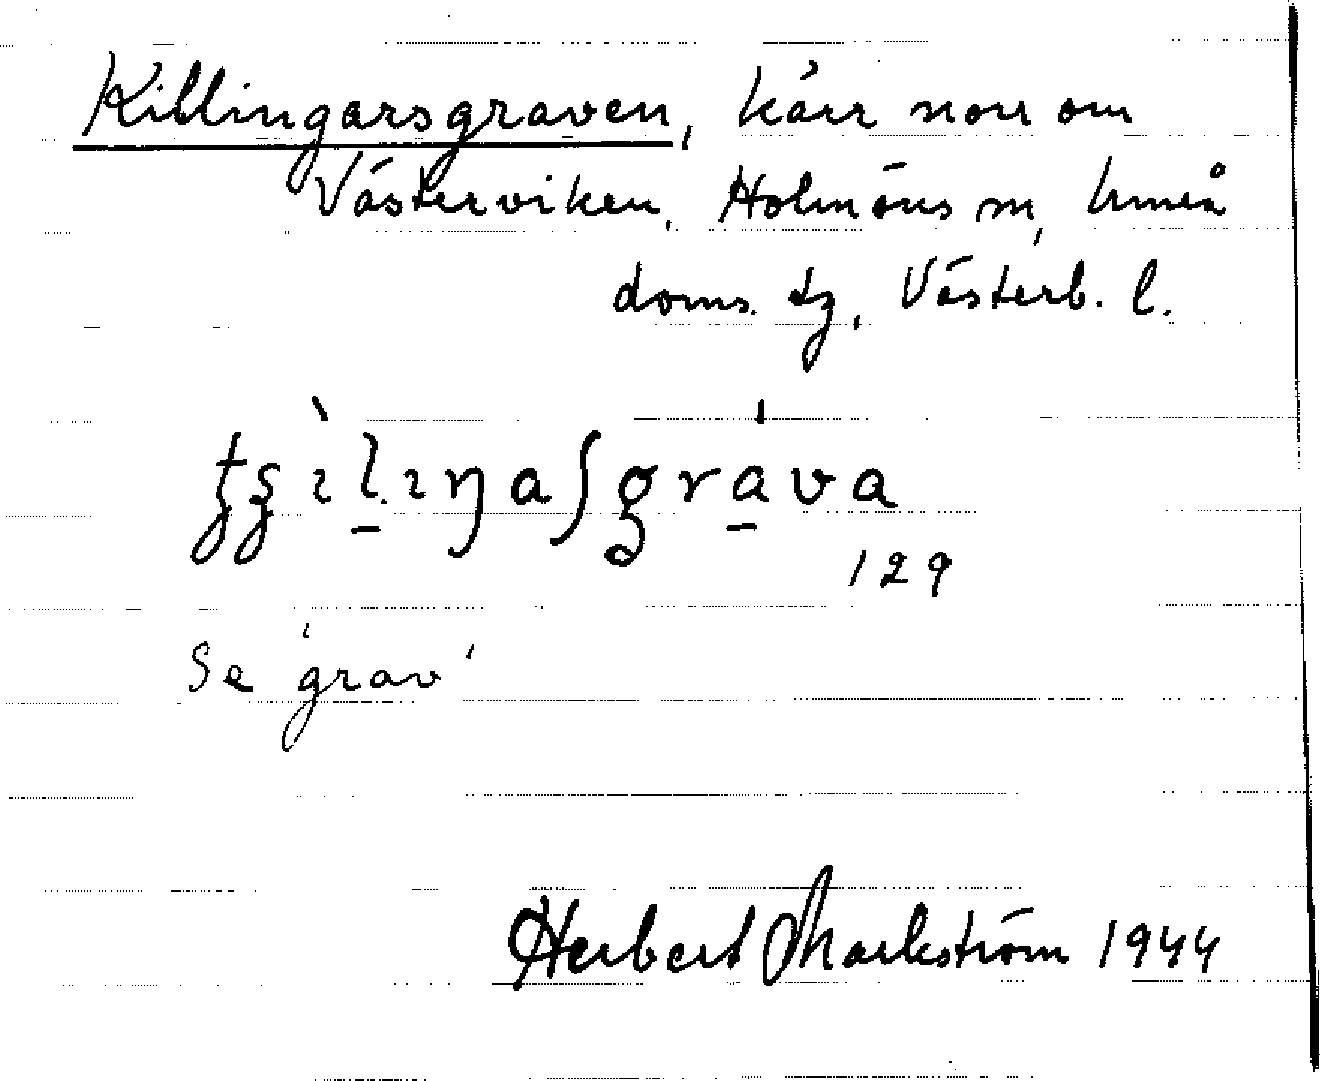 Killingarsgraven, kärr norr om
Västerviken, Holmöns sn, Umeå
doms. tg, Västerb. l.
129
Se 'grav'
Herbert Markström 1944